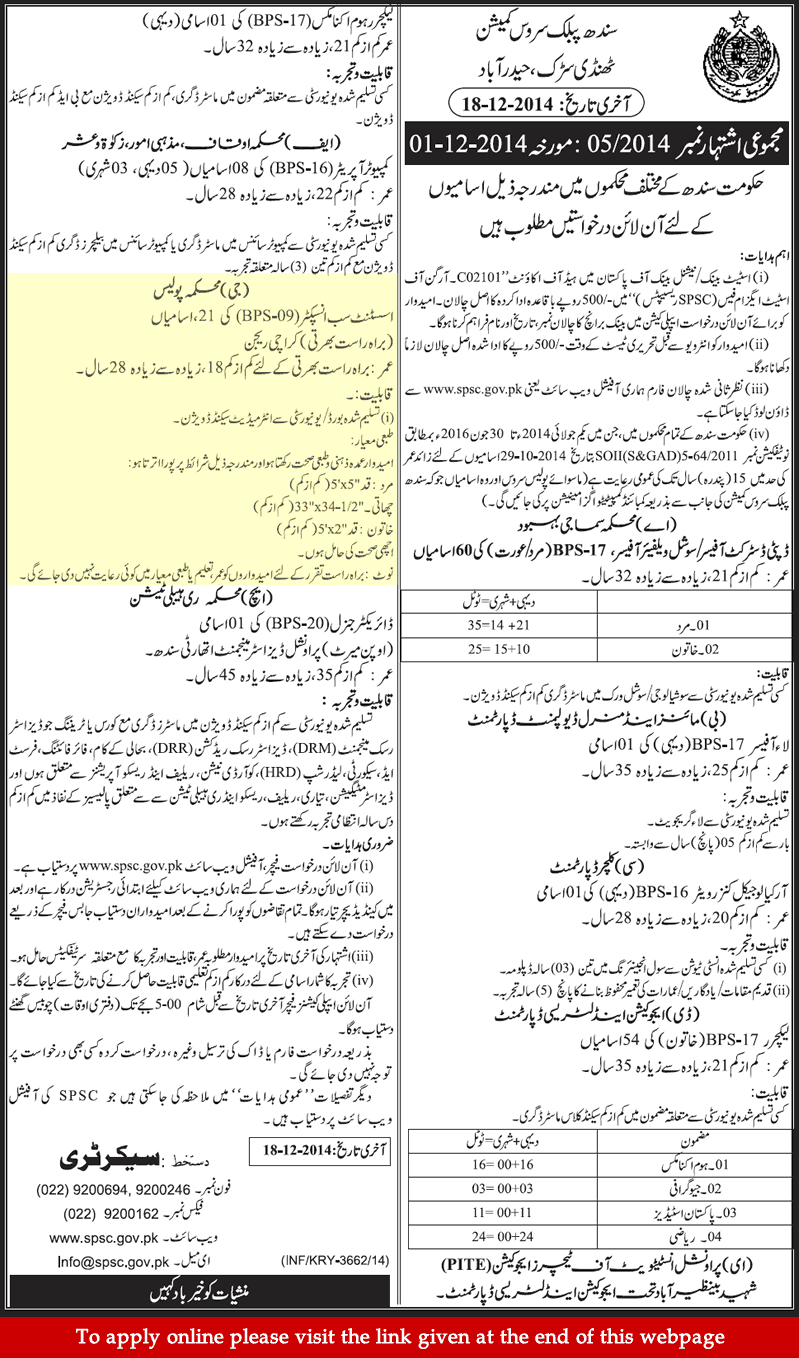 سندھ پبلک سروس کمیشن
ٹھنڈی سڑک، حیدرآباد
آخری تاریخ: 18-12-2014
مجموعی اشتہار نمبر 05/2014 : مورخہ 01-12-2014
حکومت سندھ کے مختلف محکموں میں مندرجہ ذیل اسامیوں
کے لئے آن لائن درخواستیں مطلوب ہیں
اہم ہدایات:
(i) اسٹیٹ بینک/نیشنل بینک آف پاکستان میں ہیڈ آف اکاؤنٹ "C02101۔آرگن آف
اسٹیٹ ایگزام فیس (SPSC رسیپٹس)" میں -/500 روپے باقاعدہ ادا کردہ کا اصل چالان۔ امیدوار
کو برائے آن لائن درخواست ایپلی کیشن میں بینک برانچ کا چالان نمبر، تاریخ اور نام فراہم کرنا ہوگا۔
(ii) امیدوار کو انٹرویو سے قبل تحریری ٹیسٹ کے وقت -/500 روپے کا ادا شدہ اصل چالان لازماً
دکھانا ہوگا۔
(iii) نظرثانی شدہ چالان فارم ہماری آفیشل ویب سائٹ یعنی www.spsc.gov.pk سے
ڈاؤن لوڈ کیا جاسکتا ہے۔
(iv) حکومت سندھ کے تمام محکموں میں، جن میں یکم جولائی 2014ء تا 30 جون 2016ء بمطابق
نوٹیفکیشن نمبر SOII(S&GAD)5-64/2011 بتاریخ 29-10-2014 اسامیوں کے لئے زائد عمر
کی حد میں 15 (پندرہ) سال تک کی عمومی رعایت ہے (ماسوائے پولیس سروس اور وہ اسامیاں جو کہ سندھ
پبلک سروس کمیشن کی جانب سے بذریعہ کمبائنڈ کمپیٹیٹو اگزامینیشن پر کی جائیں گی۔)
(اے) محکمہ سماجی بہبود
ڈپٹی ڈسٹرکٹ آفیسر/سوشل ویلفیئر آفیسر، BPS-17 (مرد/عورت) کی 60 اسامیاں
عمر : کم از کم 21، زیادہ سے زیادہ 32 سال۔
دیہی+شہری=ٹوٹل
01۔مرد 21+ 14=35
02۔خاتون 10+15 =25
قابلیت:
کسی تسلیم شدہ یونیورسٹی سے سوشیالوجی/سوشل ورک میں ماسٹر ڈگری کم از کم سیکنڈ ڈویژن۔
(بی) مائنز اینڈ منرل ڈیولپمنٹ ڈپارٹمنٹ
لاء آفیسر BPS-17 (دیہی) کی 01 اسامی
عمر : کم از کم 25، زیادہ سے زیادہ 35 سال۔
قابلیت و تجربہ:
تسلیم شدہ یونیورسٹی سے لاء گریجویٹ۔
بار سے کم از کم 05 (پانچ) سال سے وابستہ۔
(سی) کلچر ڈپارٹمنٹ
آرکیالوجیکل کنزرویٹر BPS-16 (دیہی) کی 01 اسامی
عمر : کم از کم 20، زیادہ سے زیادہ 28 سال۔
قابلیت و تجربہ۔
(i) کسی تسلیم شدہ انسٹی ٹیوشن سے سول انجینئرنگ میں تین (03) سالہ ڈپلومہ۔
(ii) قدیم مقامات/یادگاریں/عمارات کی تعمیر محفوظ بنانے کا پانچ (5) سالہ تجربہ۔
(ڈی) ایجوکیشن اینڈ لٹریسی ڈپارٹمنٹ
لیکچرر BPS-17 (خاتون) کی 54 اسامیاں
عمر : کم از کم 21، زیادہ سے زیادہ 35 سال۔
قابلیت:
کسی تسلیم شدہ یونیورسٹی سے متعلقہ مضمون میں کم از کم سیکنڈ کلاس ماسٹر ڈگری۔
مضمون دیہی+شہری=ٹوٹل
01۔ہوم اکنامکس 16+00 =16
02۔جیوگرافی 03+00 =03
03۔پاکستان اسٹیڈیز 11+00 =11
04۔ریاضی 24+00 =24
(ای) پراونشل انسٹیٹیوٹ آف ٹیچرز ایجوکیشن (PITE)
شہید بینظیرآباد تحت ایجوکیشن اینڈ لٹریسی ڈپارٹمنٹ۔
لیکچرر ہوم اکنامکس (BPS-17) کی 01 اسامی (دیہی)
عمر کم از کم 21، زیادہ سے زیادہ 32 سال۔
قابلیت و تجربہ:
کسی تسلیم شدہ یونیورسٹی سے متعلقہ مضمون میں ماسٹر ڈگری، کم از کم سیکنڈ ڈویژن مع بی ایڈ کم از کم سیکنڈ
ڈویژن۔
(ایف) محکمہ اوقاف، مذہبی امور، زکوٰۃ و عشر
کمپیوٹر آپریٹر (BPS-16) کی 08 اسامیاں (05 دیہی، 03 شہری)
عمر : کم از کم 22، زیادہ سے زیادہ 28 سال۔
قابلیت و تجربہ:
کسی تسلیم شدہ یونیورسٹی سے کمپیوٹر سائنس میں ماسٹر ڈگری یا کمپیوٹر سائنس میں بیچلرز ڈگری کم از کم سیکنڈ
ڈویژن مع کم از کم تین (3) سالہ متعلقہ تجربہ۔
(جی) محکمہ پولیس
اسسٹنٹ سب انسپکٹر (BPS-09) کی 21، اسامیاں
(براہ راست بھرتی) کراچی ریجن
عمر : براہ راست بھرتی کے لئے کم از کم 18، زیادہ سے زیادہ 28 سال۔
قابلیت:۔
(i) تسلیم شدہ بورڈ/یونیورسٹی سے انٹرمیڈیٹ سیکنڈ ڈویژن۔
طبعی معیار:
امیدوار عمدہ ذہنی و طبعی صحت رکھتا ہو اور مندرجہ ذیل شرائط پر پورا اترتا ہو:
مرد: قد "5'x5 (کم از کم)
چھاتی۔ "33"x34-1/2 (کم از کم)
خاتون : قد "5'x2 (کم از کم)
اچھی صحت کی حامل ہوں۔
نوٹ : براہ راست تقرر کے لئے امیدواروں کو عمر، تعلیم یا طبعی معیار میں کوئی رعایت نہیں دی جائے گی۔
(ایچ) محکمہ ری ہیبلی ٹیشن
ڈائریکٹر جنرل (BPS-20) کی 01 اسامی
(اوپن میرٹ) پراونشل ڈیزاسٹر مینجمنٹ اتھارٹی سندھ۔
عمر : کم از کم 35، زیادہ سے زیادہ 45 سال۔
قابلیت و تجربہ :
تسلیم شدہ یونیورسٹی سے کم از کم سیکنڈ ڈویژن میں ماسٹرز ڈگری مع کورس یا ٹریننگ جو ڈیزاسٹر
رسک مینجمنٹ (DRM)، ڈیزاسٹر رسک ریڈکشن (DRR)، بحالی کے کام، فائر فائٹنگ، فرسٹ
ایڈ، سیکورٹی، لیڈر شپ (HRD)، کوآرڈی نیشن، ریلیف اینڈ ریسکو آپریشنز سے متعلق ہوں اور
ڈیزاسٹر مٹیگیشن، تیاری، ریلیف، ریسکو اینڈ ری ہیبلی ٹیشن سے متعلق پالیسیز کے نفاذ میں کم از کم
دس سالہ انتظامی تجربہ رکھتے ہوں۔
ضروری ہدایات۔
(i) آن لائن درخواست فیچر، آفیشل ویب سائٹ www.spsc.gov.pk پر دستیاب ہے۔
(ii) آن لائن درخواست کے لئے ہماری ویب سائٹ کیلئے ابتدائی رجسٹریشن درکار ہے اور بعد
میں کینڈیڈیچر تیار ہوگا۔ تمام تقاضوں کو پورا کرنے کے بعد امیدواران دستیاب جابس فیچر کے ذریعے
درخواست دے سکتے ہیں۔
(iii) اشتہار کی آخری تاریخ پر امیدوار مطلوبہ عمر، قابلیت اور تجربہ کا مع متعلقہ سرٹیفکیٹس حامل ہو۔
(iv) تجربہ کا شمار اسامی کے لئے درکار کم از کم تعلیمی قابلیت حاصل کرنے کی تاریخ سے کیا جائے گا۔
آن لائن ایپلی کیشنز فیچر آخری تاریخ سے قبل شام 5-00 بجے تک (دفتری اوقات) چوبیس گھنٹے
دستیاب ہوگا۔
بذریعہ درخواست فارم یا ڈاک کی ترسیل وغیرہ، درخواست کردہ کسی بھی درخواست پر
توجہ نہیں دی جائے گی۔
دیگر تفصیلات "عمومی ہدایات" میں ملاحظہ کی جاسکتی ہیں جو SPSC کی آفیشل
ویب سائٹ پر دستیاب ہیں۔
آخری تاریخ: 18-12-2014
دستخط : سیکرٹری
فون نمبر۔ 9200246 ,9200694 (022)
فیکس نمبر۔ 9200162 (022)
ویب سائٹ۔ www.spsc.gov.pk
ای میل۔ Info@spsc.gov.pk
(INF/KRY-3662/14)
منشیات کو خیرباد کہیں
To apply online please visit the link given at the end of this webpage